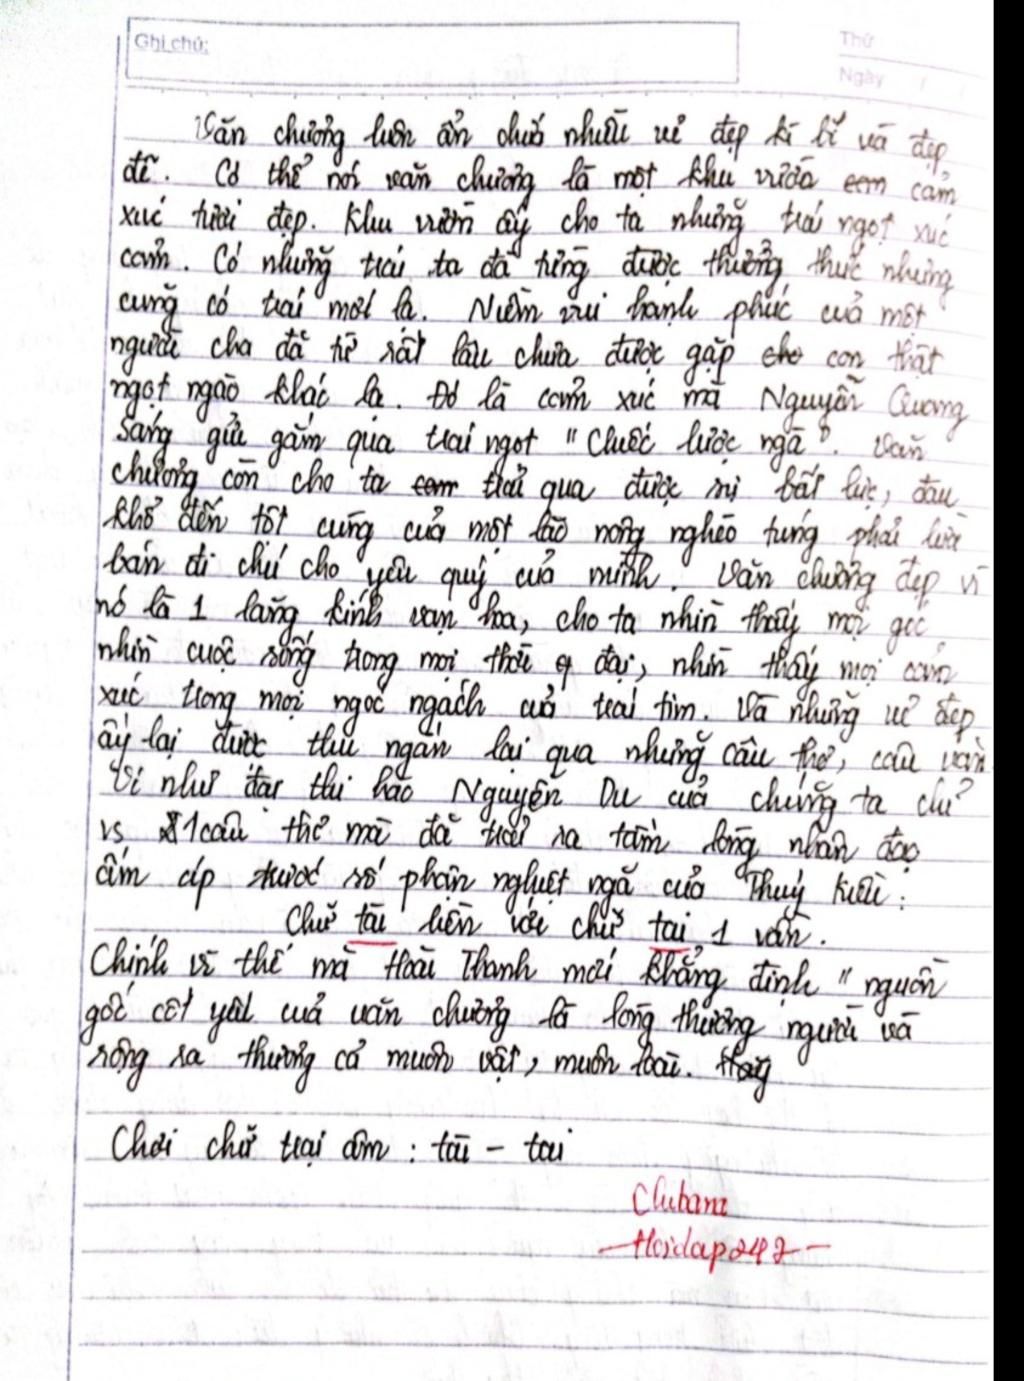 Ghi chú:
Thứ
Ngày / /
Văn chương luôn ẩn chứa nhiều vẻ đẹp kì bí và đẹp
đẽ. Có thể nói văn chương là một khu vườn cảm
xúc tươi đẹp. Khu vườn ấy cho ta những trái ngọt xúc
cảm. Có những trái ta đã từng được thưởng thức nhưng
cũng có trái mới lạ. Niềm vui hạnh phúc của một
người cha đã từ rất lâu chưa được gặp con thật
ngọt ngào khác lạ. Đó là cảm xúc mà Nguyễn Quang
Sáng gửi gắm qua trái ngọt "Chiếc lược ngà". Văn
chương còn cho ta trải qua được sự bất lực, đau
khổ đến tột cùng của một lão nông nghèo túng phải lừa
bán đi chú chó yêu quý của mình. Văn chương đẹp vì
nó là 1 lăng kính vạn hoa, cho ta nhìn thấy mọi góc
nhìn cuộc sống trong mọi thời đại, nhìn thấy mọi cảm
xúc trong mọi ngóc ngách của trái tim. Và những vẻ đẹp
ấy lại được thu ngắn lại qua những câu thơ, câu văn
Ví như đại thi hào Nguyễn Du của chúng ta chỉ
vs 1 câu thơ mà đã trải ra tấm lòng nhân đạo
ấm áp trước số phận nghiệt ngã của Thuý Kiều:
Chữ tài liền với chữ tai 1 vần.
Chính vì thế mà Hoài Thanh mới khẳng định "nguồn
gốc cốt yếu của văn chương là lòng thương người và
rộng ra thương cả muôn vật, muôn loài.
Chơi chữ trại âm: tài - tai
Chibana
-Hoidap247-